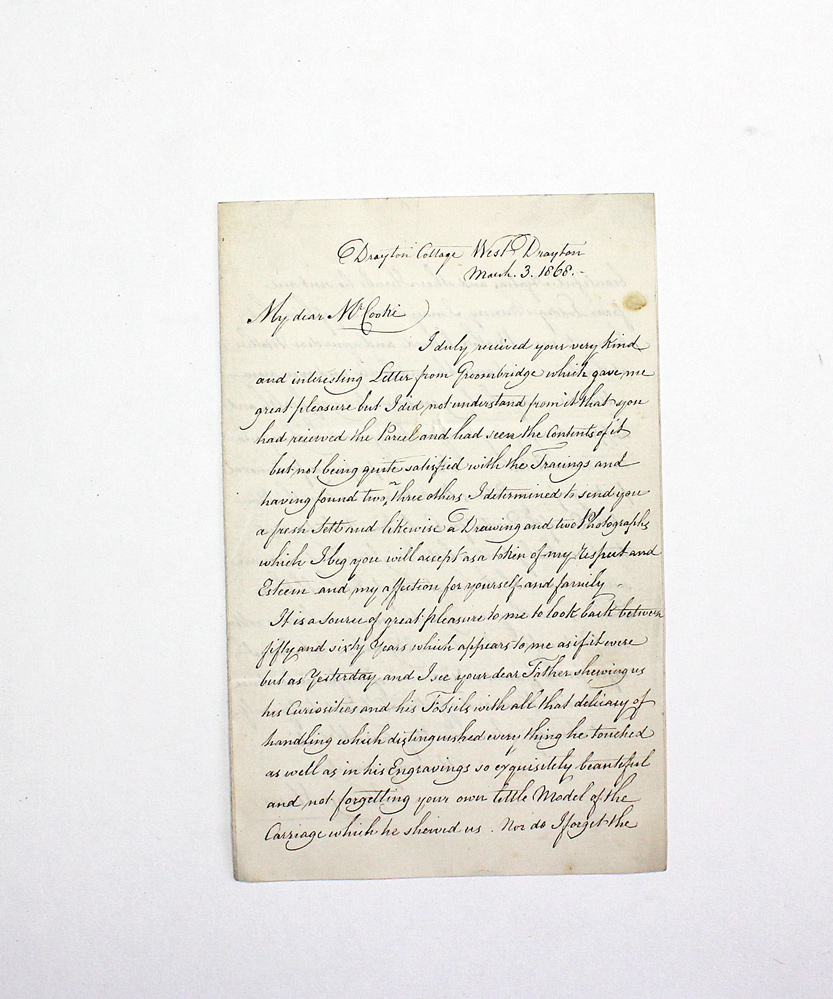 Drayton Cottage West Drayton
March. 3. 1868.-
My dear Mr Cooke
I duly received your very kind
and interesting Letter from Groombridge which gave me
great pleasure but I did not understand from it that you
had received the Parcel and had seen the Contents of it
but not being quite satisfied with the Tracings and
having found two, or three others I determined to send you
a fresh Sett and likewise a Drawing and two Photographs
which I beg you will accept as a token of my Respect and
Esteem and my affection for yourself and family.
It is a source of great pleasure to me to look back between
fifty and sixty Years which appears to me as if it were
but as Yesterday and I see your dear Father shewing us
his Curiosities and his Fossils with all that delicacy of
handling which distinguished every thing he touched
as well as in his Engravings so exquisitely beautiful
and not forgetting your own little Model of the
Carriage which he shewed us. Nor do I forget the